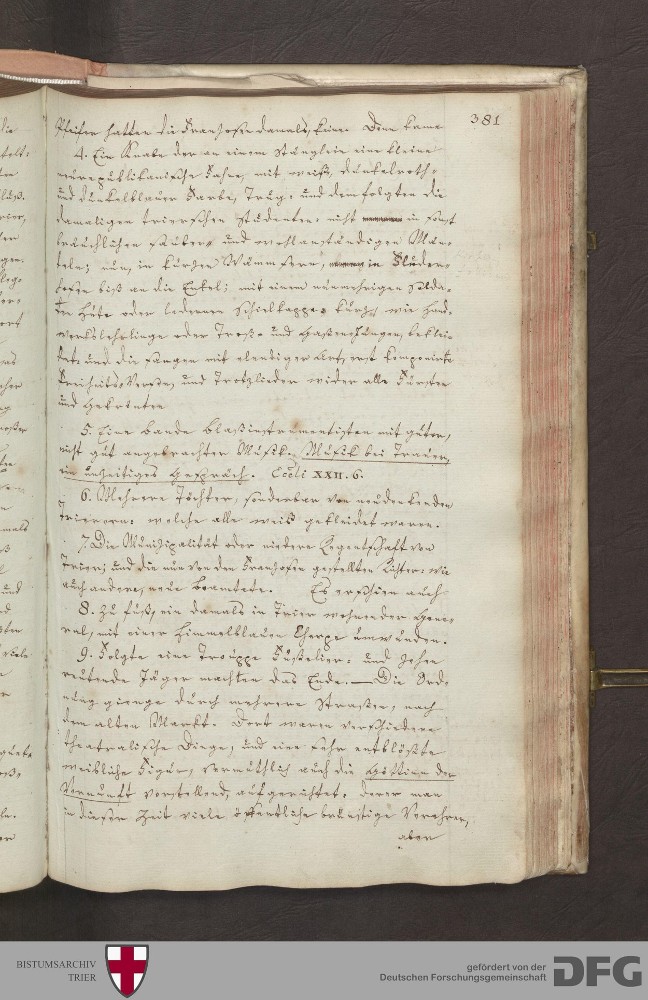 381
Pfeifer hatten die Franzosen damals keine. Dann kame
4. Ein Knabe der an einem Stänglein eine kleine
neurepublikanische Fahne, mit weiß, dunkelroth-
und dunkelblauer Farbe, trug. und dem folgten die
damaligen trierischen Studenten: nicht in sonst
bräuchlichen saubern und wohlanständigen Män-
teln; nun, in kurzen Wämmsern, in Pluder-
hosen biß an die Enkel; mit einem
Hüte oder ledernen Schielkappe, kurz, wie Hand-
werkslehrlinge oder Troß- und Gassenjungen, beklei-
det: und die sangen mit elendiger Art, erst komponirte
Freiheits-Verse, und Trotzlieder wider alle Fürsten
und Gekrönten
5. Eine bande blasinstrumentisten mit guter,
nicht gut angebrachter Musik. Musik bei Trauer,
ein unzeitiges Gespräch. Eccli XXII. 6.
6. Mehrere Töchter, sonderbar von neudenkenden
Trierern: welche alle weiß gekleidet waren.
7. Die Munizipalität oder niedere Regentschaft von
Trier; und die nun von den Franzosen gestellten Richter: wie
auch andere, neue beamtete. Es erschien auch
8. zu Fuß, ein damals in Trier wohnender Gene-
ral, mit einer himmelblauen Cherpe umwunden.
9. Folgte eine Trouppe Fusselier: und zehn
reutende Jäger machten das Ende. — Die Ord-
nung gienge durch mehrere Strassen, nach
dem alten Markt. Dort waren verschiedene
theatralische Dinge, und eine sehr entblößte
weibliche Figur, vermuthlich auch die Göttinn der
Vernunft vorstellend, aufgerichtet. derer man
in dieser Zeit viele öffentliche brünstige Verehrer,
aber
BISTUMSARCHIV
TRIER
gefördert von der
Deutschen Forschungsgemeinschaft
DFG